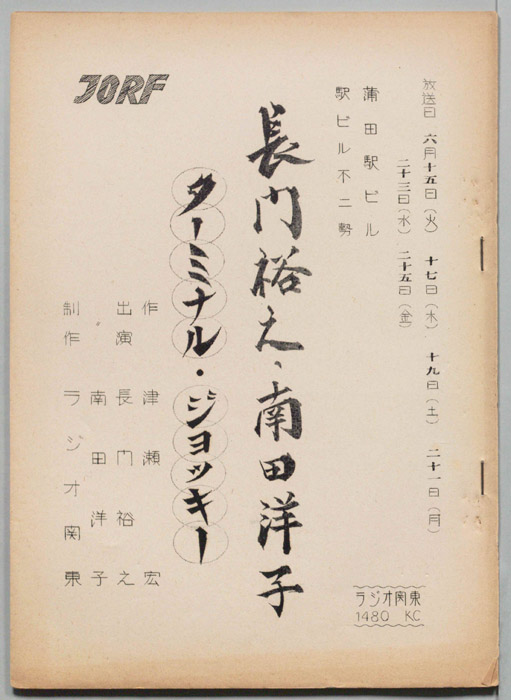 放送日 六月十五日(火) 十七日(木) 十九日(土) 二十一日(月)
二十三日(水) 二十五日(金)
蒲田駅ビル
駅ビル不二勢
長門裕之、南田洋子
ターミナル・ジョッキー
JORF
作 津瀬宏
出演 長門裕之
南田洋子
制作 ラジオ関東
ラジオ関東
1480 KC